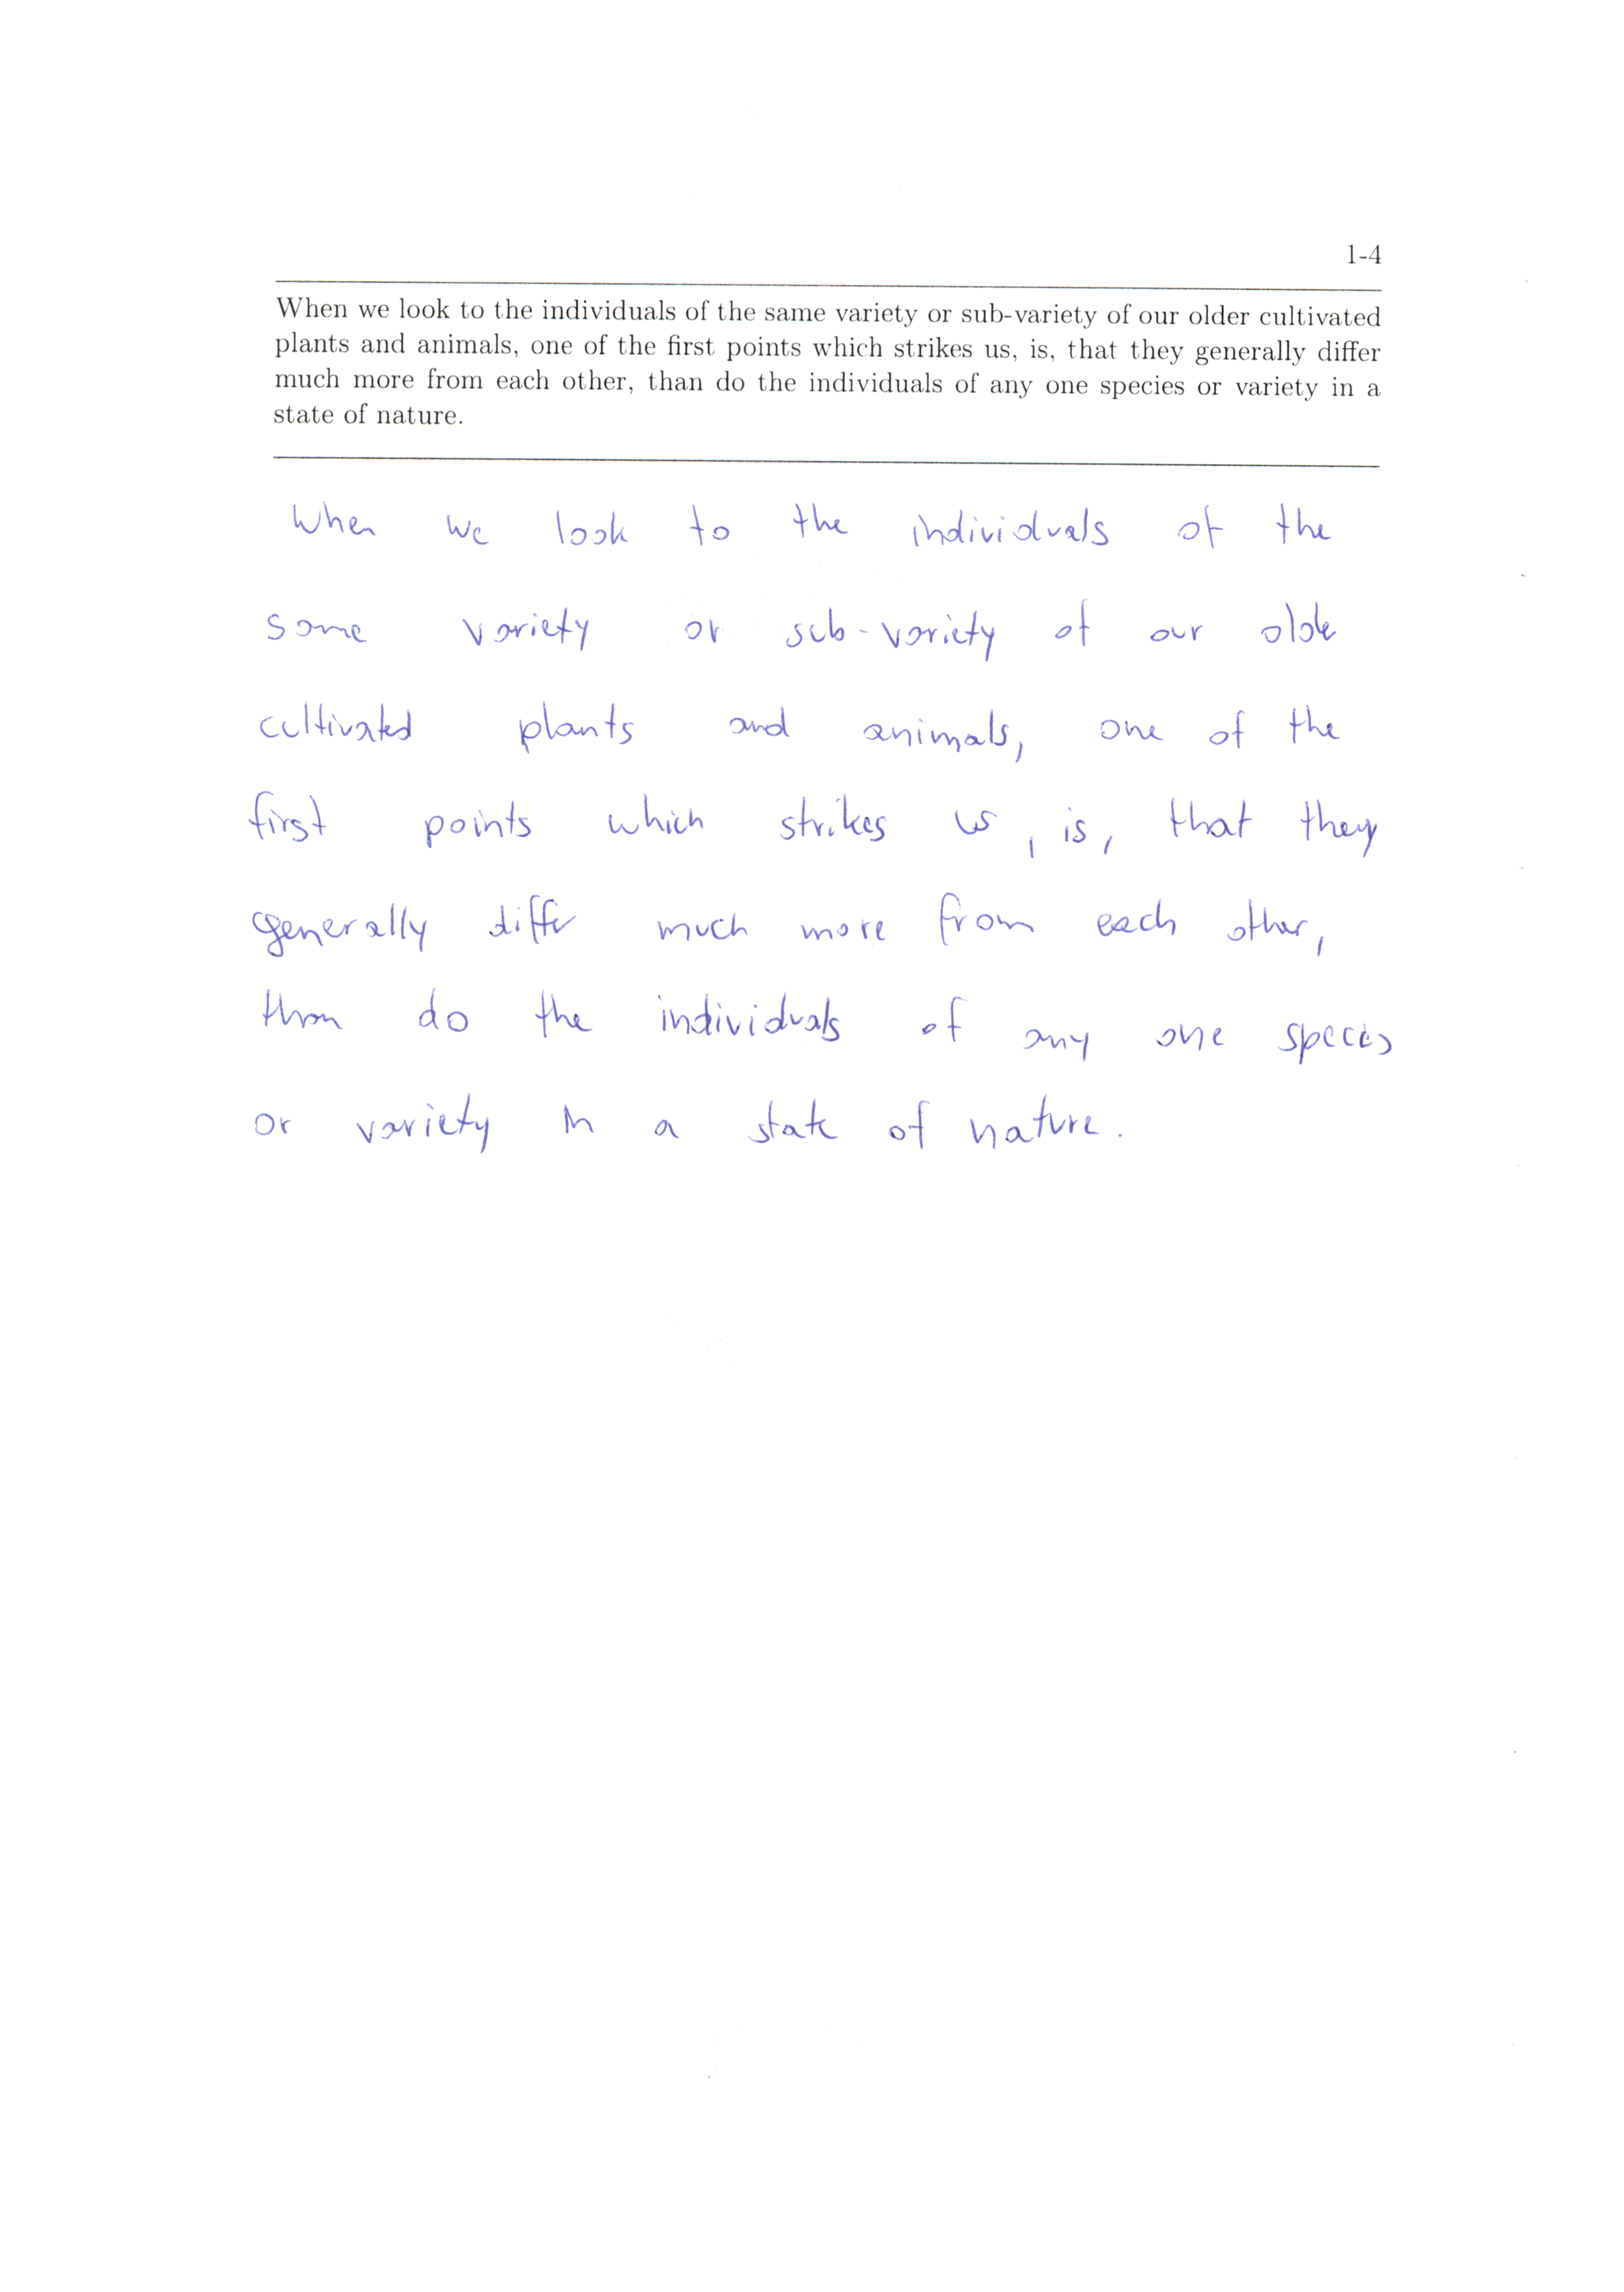 1-4
When we look to the individuals of the same variety or sub-variety of our older cultivated
plants and animals, one of the first points which strikes us, is, that they generally differ
much more from each other, than do the individuals of any one species or variety in a
state of nature.
When we look to the individuals of the
same variety or sub-variety of our older
cultivated plants and animals, one of the
first points which strikes us, is, that they
generally differ much more from each other,
than do the individuals of any one species
or variety in a state of nature.